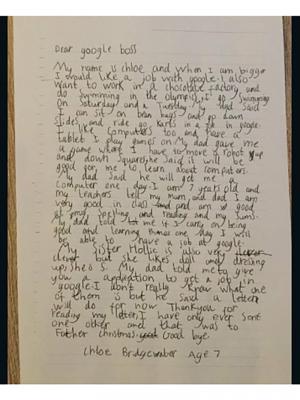 Dear google boss
My name is chloe and when I am bigger
I would like a job with google. I also
want to work in a chocolate factory and
do swimming in the olympics. I go swimming
on Saturday and a Tuesday. My dad said
I can sit on bean bags and go down
slides and ride go karts in a job in google.
I like computers too and have a
tablet I play games on. My dad gave me
a game where I have to move a robot up
and down squares, he said it will be
good for me to learn about computers.
My dad said he will get me a
computer one day. I am 7 years old and
my teachers tell my mum and dad I am
very good in class and am good
at my spelling and reading and my sums.
my dad told me if I carry on being
good and learning then one day I will
be able to have a job at google.
My sister Hollie is also very
clever but she likes doll and dressing
up, she is 5. My dad told me to give
you a application to get a job in
google. I don't really know what one
of them is but he said a letter
will do for now. Thank you for
reading my letter, I have only ever sent
one other and that was to
Father christmas. Good bye
Chloe Bridgewater Age 7